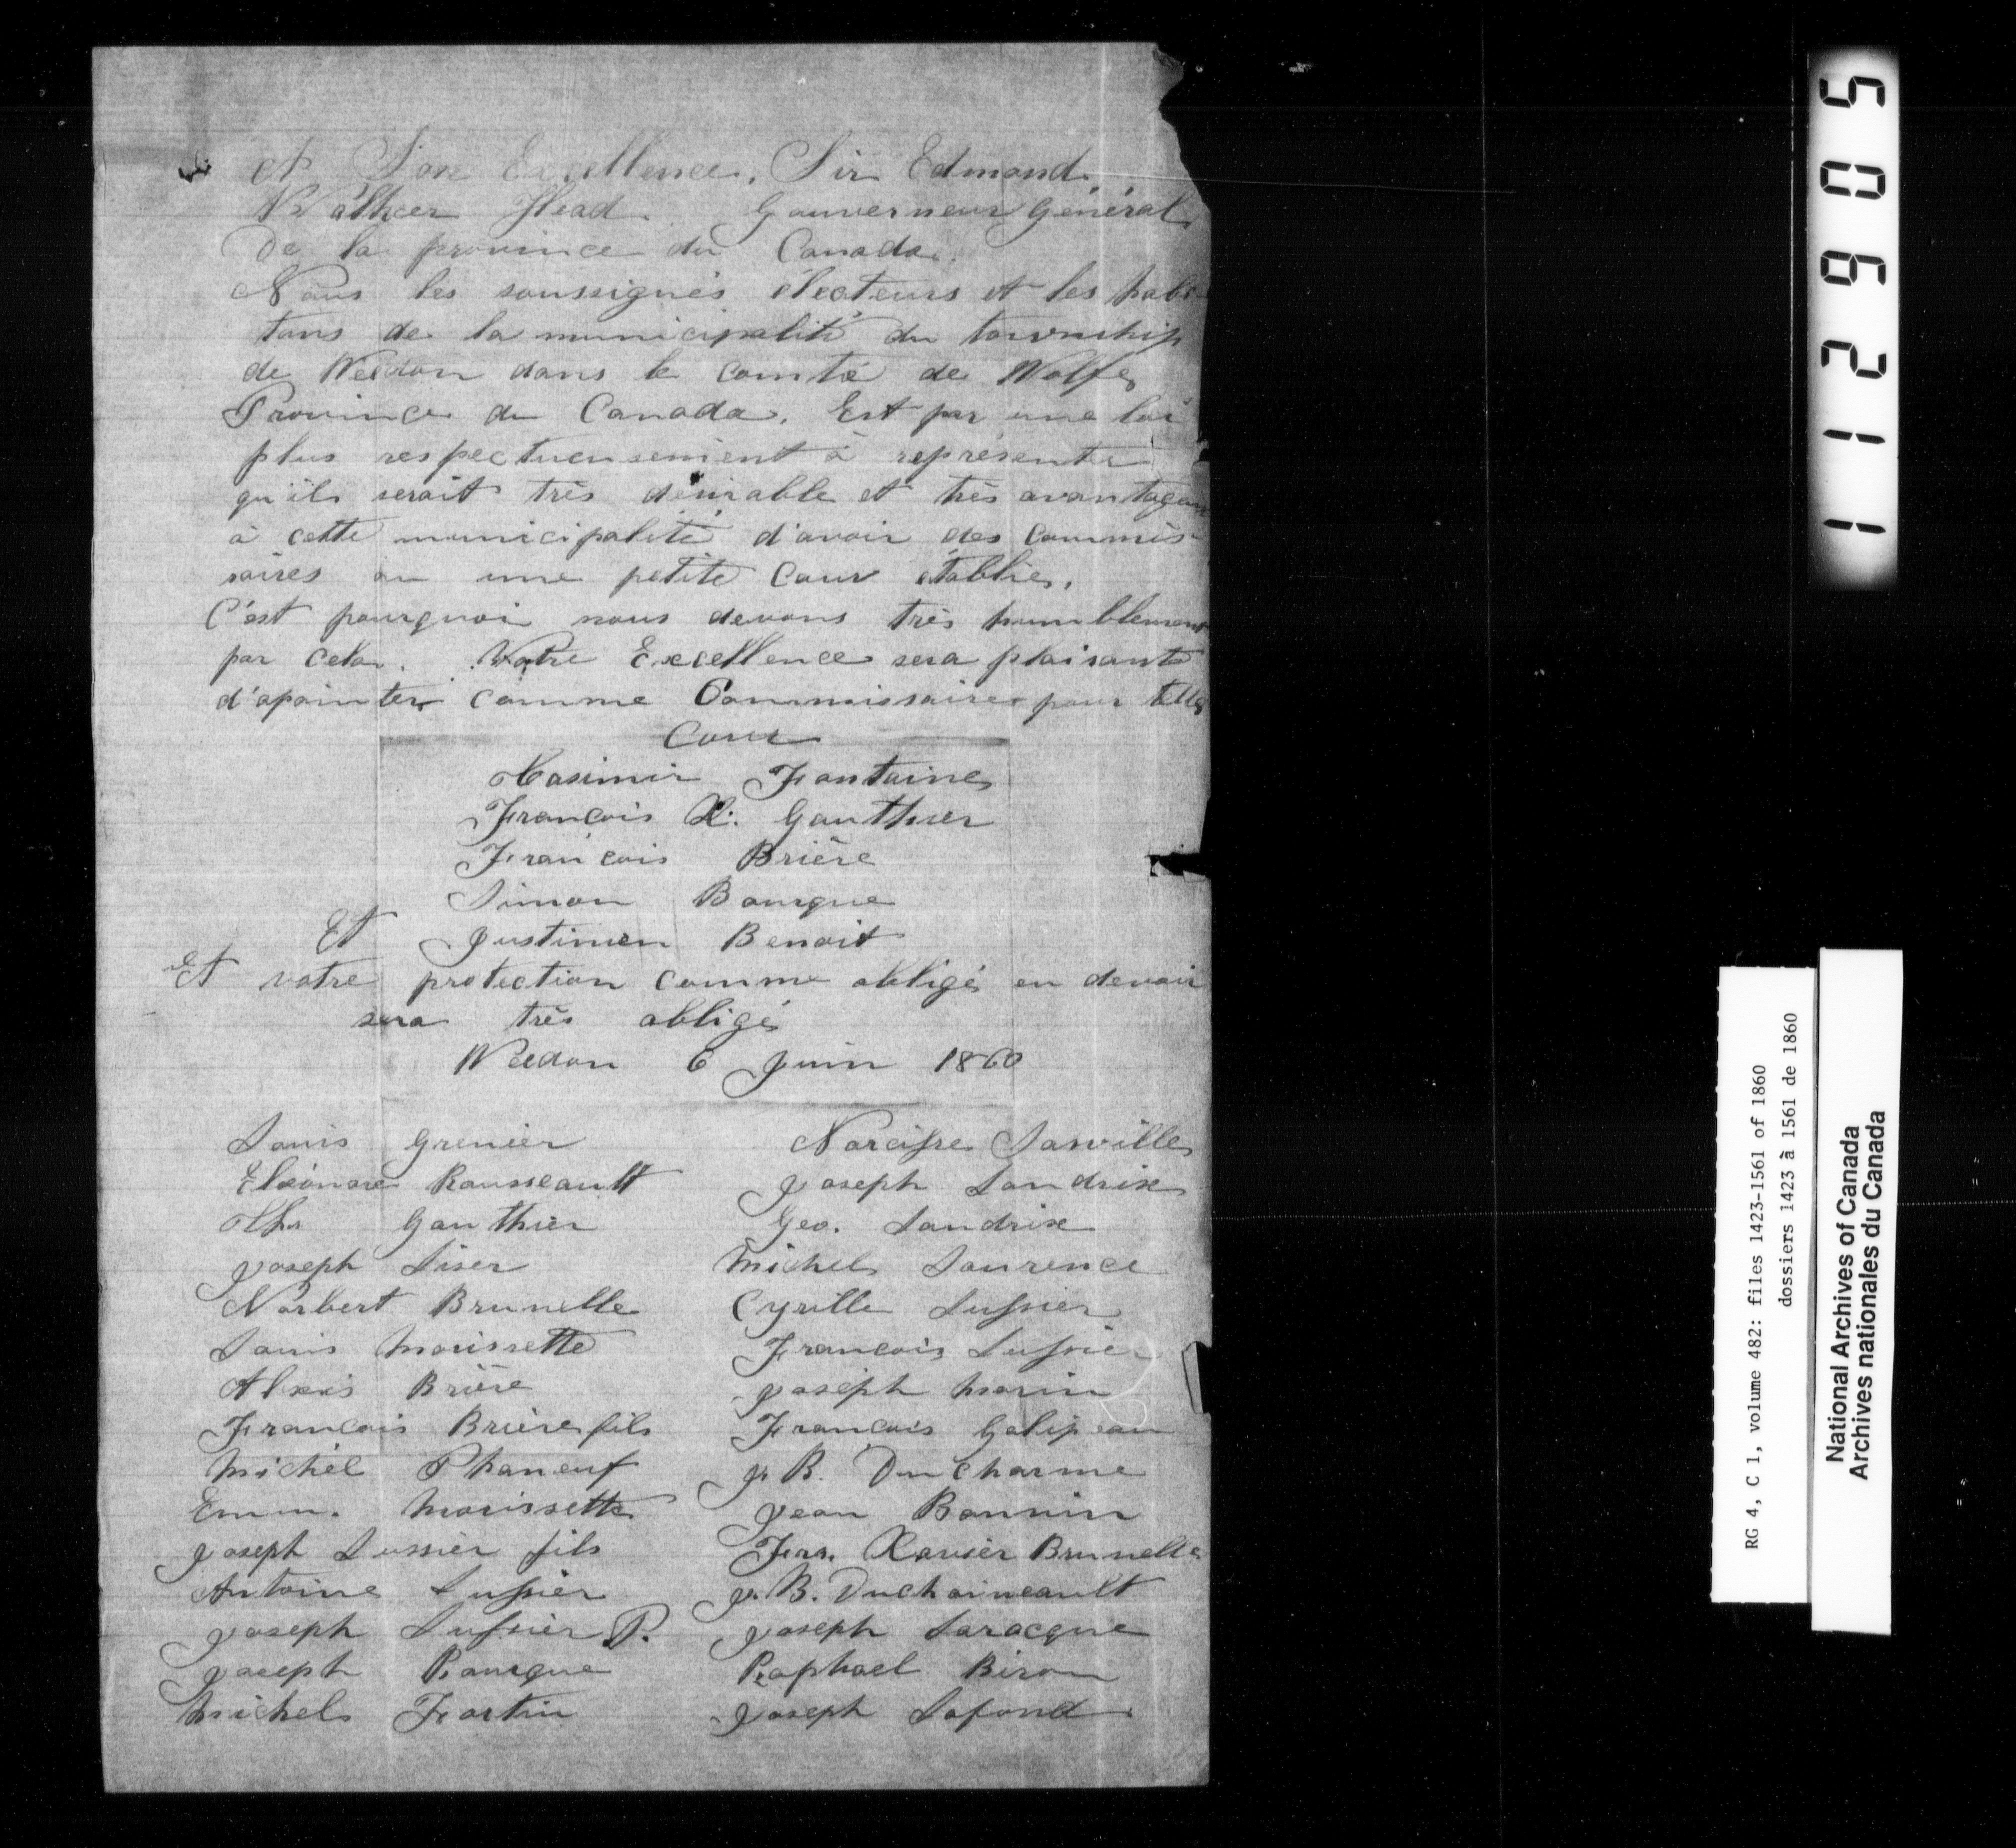 A Son Excellence, Sir Edmond
Walker Head. Gouverneur Général
De la province du Canada.
Nous les soussignés électeurs et les habi
tans de la municipalité du township
de Weedon dans le comté de Wolfe
Province du Canada. Est par une loi
plus respectueusement à représenter
qu'ils serait très désirable et très avantageux
à cette municipalité d'avoir des commis-
saires ou une petite Cour établie.
C'est pourquoi nous devons très humblement
par cela. Votre Excellence sera plaisante
d'apointer comme Commissaires pour telle
Cour
Casimir Fontaine
François X. Gauthier
François Brière
Simon Bourque
Et Justinien Benoit
Et votre protection comme obligé en devoir
sera très obligé
Weedon 6 Juin 1860
Louis Grenier
Eléonore Rousseault
Chs Gauthier
Joseph Liser
Norbert Brunelle
Louis Morissette
Alexis Brière
François Brière fils
Michel Phaneuf
Emm. Morissette
Joseph Lussier fils
Antoine Lussier
Joseph Lussier P.
Joseph Bourque
Michel Fortin
Narcisse Janville
Joseph Landrixe
Geo. Landrixe
Michel Laurence
Cyrille Lussier
François Lussier
Joseph Morin
François Galipeau
J. B. DuCharme
Jean Bonnin
Frs. Xavier Brunelle
J. B. Duchaineault
Joseph Laracque
Raphael Biron
Joseph Lafond
112905
RG 4, C 1, volume 482: files 1423-1561 of 1860
dossiers 1423 à 1561 de 1860
National Archives of Canada
Archives nationales du Canada